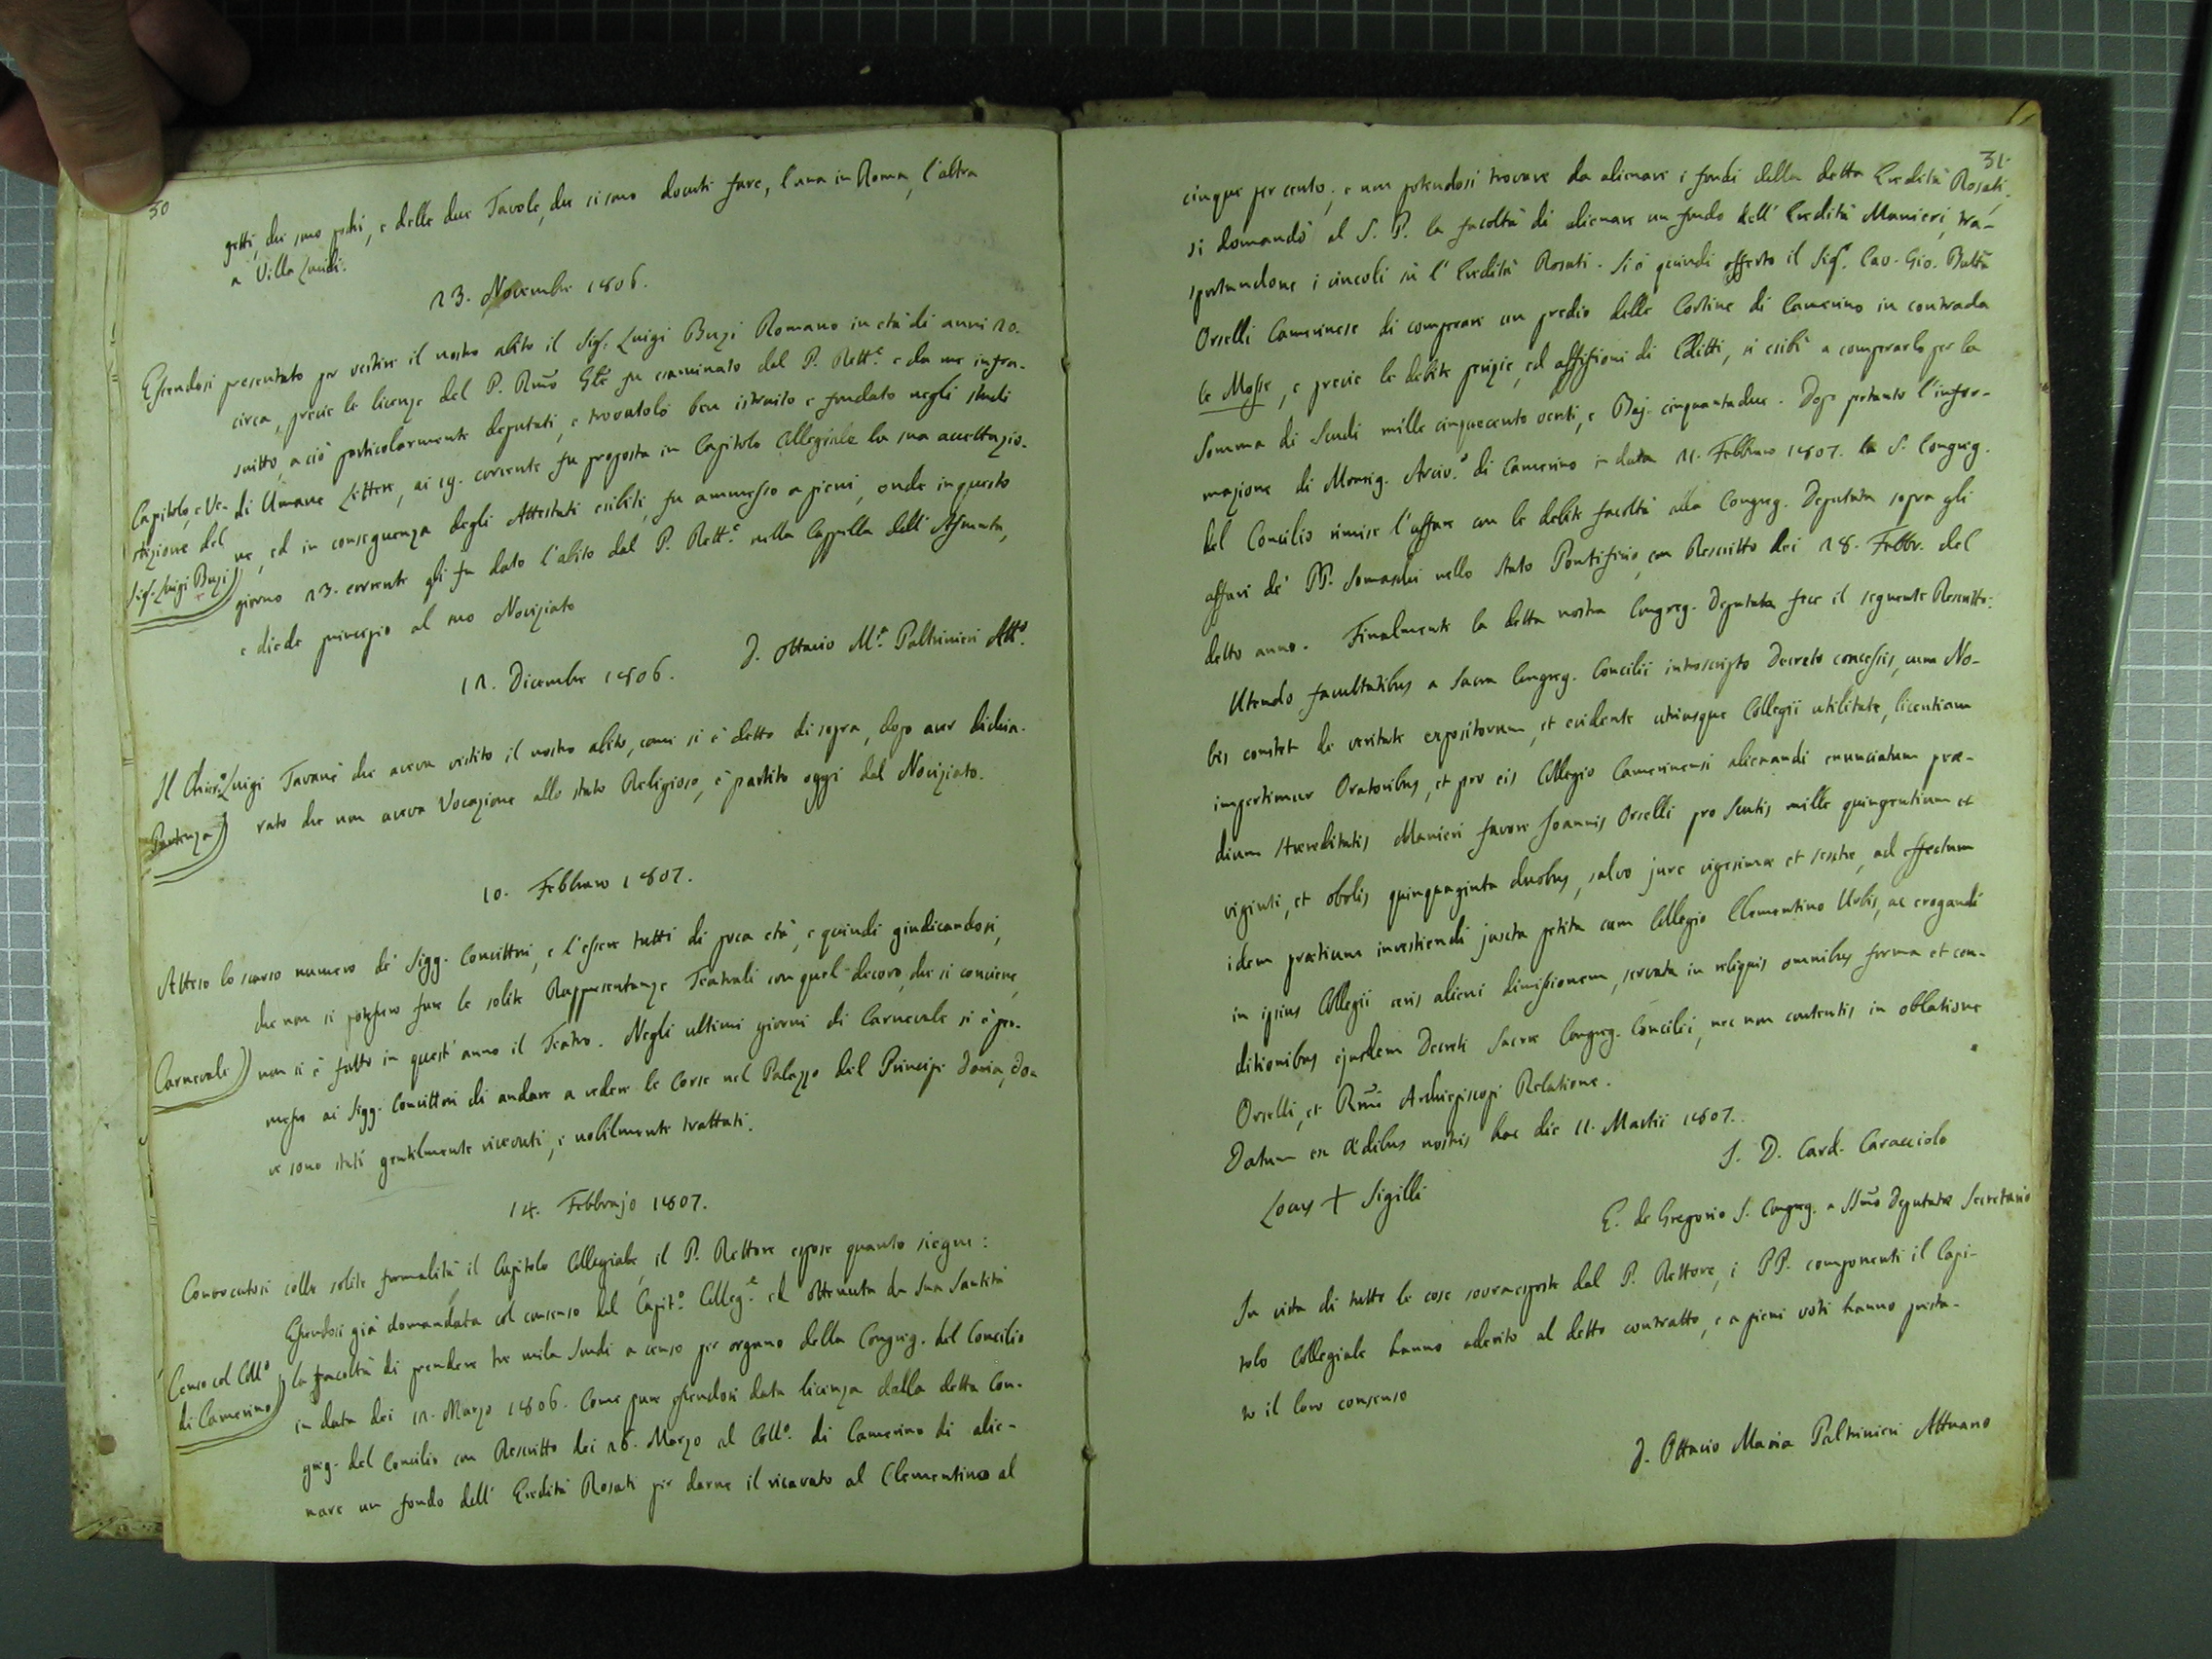 30
getti, che sono pochi, e delle due Tavole, che si sono dovuti fare, l'una in Roma, l'altra
a Villa Lucidi.
23. Novembre 1806.
Essendosi presentato per vestire il nostro abito il Sig. Luigi Buzi Romano in età di anni 20.
circa, previe le licenze del P. Rmo Gle fu esaminato dal P. Rett.e e da me infra-
scritto, a ciò particolarmente deputati, e trovatolo ben istruito e fondato negli studi
Capitolo, e Ve-
stizione del
Sig. Luigi Buzi
di Umane Lettere, ai 19. corrente fu proposta in Capitolo Collegiale la sua accettazio-
ne, ed in conseguenza degli Attestati esibiti, fu ammesso a pieni, onde in questo
giorno 23. corrente gli fu dato l'abito dal P. Rett.e nella Cappella dell'Assunta,
e diede principio al suo Noviziato
D. Ottavio M.a Paltrinieri Att.o
12. Dicembre 1806.
Il Chier.o Luigi Tavanè che aveva vestito il nostro abito, come si è detto di sopra, dopo aver dichia-
Partenza
rato che non aveva Vocazione allo stato Religioso, è partito oggi dal Noviziato.
10. Febbraro 1807.
Atteso lo scarso numero de' Sigg. Convittori, e l'essere tutti di poca età, e quindi giudicandosi,
che non si potessero fare le solite Rappresentanze Teatrali con quel decoro, che si conviene,
Carnevale
non si è fatto in quest'anno il Teatro. Negli ultimi giorni di Carnevale si è per-
messo ai Sigg. Convittori di andare a vedere le Corse nel Palazzo del Principe Doria, do-
ve sono stati gentilmente ricevuti, e nobilmente trattati.
14. Febbrajo 1807.
Convocatosi colle solite formalità il Capitolo Collegiale, il P. Rettore espose quanto siegue:
Essendosi già domandata col consenso del Capit.o Colleg.e ed ottenuta da Sua Santità
Censo col Coll.o
di Camerino
la facoltà di prendere tre mila Scudi a censo per organo della Congreg. del Concilio
in data dei 12. Marzo 1806. Come pure essendosi data licenza dalla detta Con-
greg. del Concilio con Rescritto dei 26. Marzo al Coll.o di Camerino di alie-
nare un fondo dell'Eredità Rosati per darne il ricavato al Clementino al
31.
cinque per cento; e non potendosi trovare da alienare i fondi della detta Eredità Rosati,
si domandò al S. P. la facoltà di alienare un fondo dell'Eredità Manieri, tra-
sportandone i vincoli sù l'Eredità Rosati. Si è quindi offerto il Sig. Cav. Gio. Batta
Orselli Camerinese di comperare un predio delle Cortine di Camerino in contrada
le Mosse, e previe le debite perizie, ed affissioni di Editti, si esibì a comprarlo per la
Somma di Scudi mille cinquecento venti, e Baj. cinquantadue. Dopo pertanto l'infor-
mazione di Monsig. Arciv.o di Camerino in data 21. Febbraro 1807. la S. Congreg.
del Concilio rimise l'affare con le debite facoltà alla Congreg. Deputata sopra gli
affari de' PP. Somaschi nello Stato Pontificio, con Rescritto dei 28. Febbr. del
detto anno. Finalmente la detta nostra Congreg. Deputata fece il seguente Rescritto:
Utendo facultatibus a Sacra Congreg. Concilii introscripto Decreto concessis, cum No-
bis constet de veritate expositorum, et evidente utriusque Collegii utilitate, licentiam
impertimur Oratoribus, et pro eis Collegio Camerinensi alienandi enunciatum præ-
dium Hæreditatis Manieri favore Joannis Orselli pro Scutis mille quingentium et
viginti, et obolis quinquaginta duobus, salvo jure vigesimæ et sextæ, ad effectum
idem prætium investiendi juxta petita cum Collegio Clementino Urbis, ac erogandi
in ipsius Collegii æris alieni dimissionem, servata in reliquis omnibus forma et con-
ditionibus ejusdem Decreti Sacræ Congreg. Concilii, nec non contentis in oblatione
Orselli, et Rmi Archiepiscopi Relatione.
Datum ex Ædibus nostris hac die 11. Martii 1807.
J. D. Card. Caracciolo
Locus + Sigilli
E. de Gregorio S. Congreg. a SSmo Deputatæ Secretario
In vista di tutte le cose sovraesposte dal P. Rettore, i PP. componenti il Capi-
tolo Collegiale hanno aderito al detto contratto, e a pieni voti hanno presta-
to il loro consenso
D. Ottavio Maria Paltrinieri Attuario